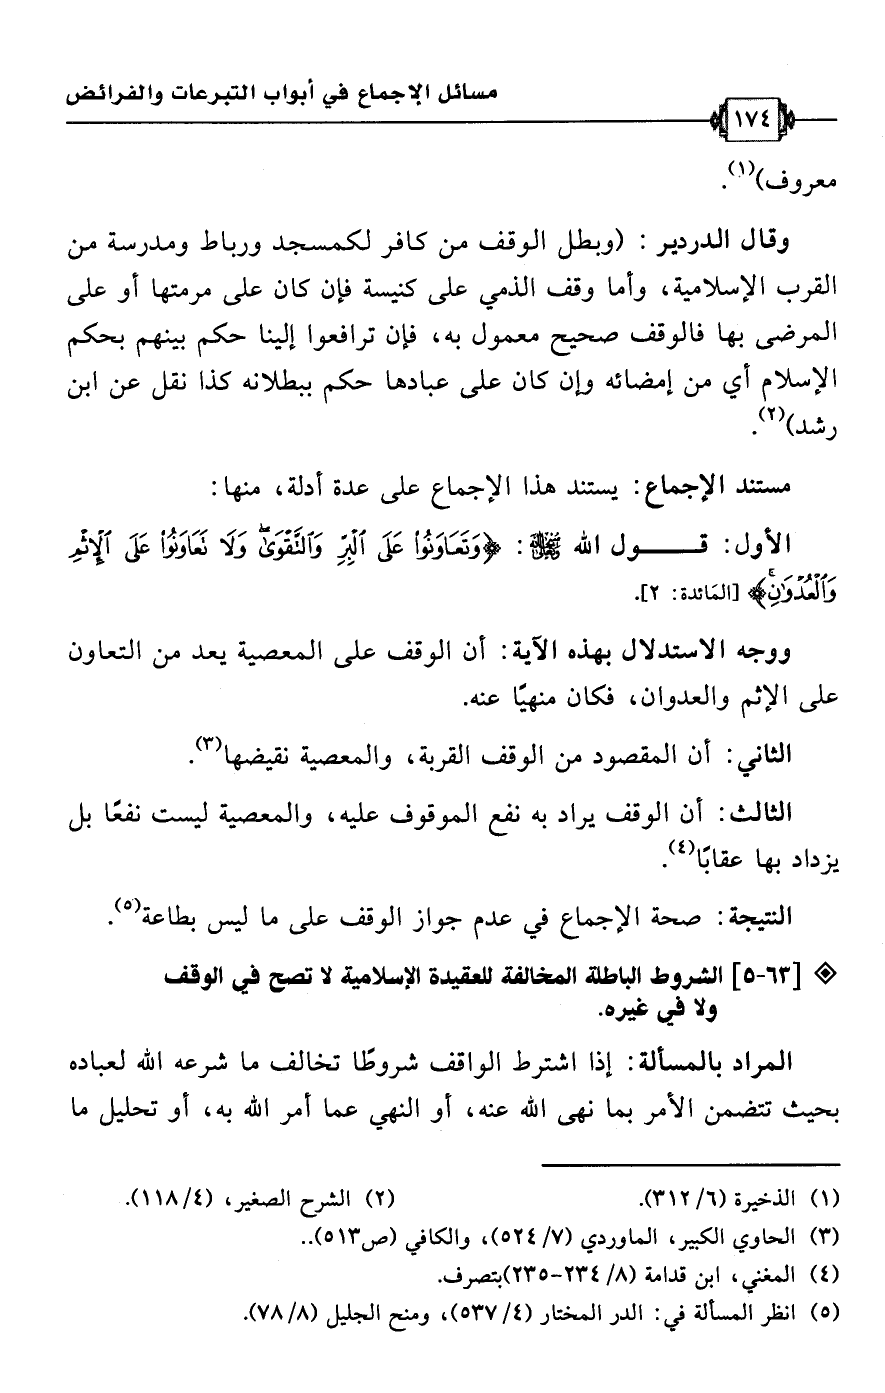 مسائل الإجماع في أبواب التبرعات والفرائض
١٧٤
معروف)(١).
وقال الدردير: (وبطل الوقف من كافر لكمسجد ورباط ومدرسة من
القرب الإسلامية، وأما وقف الذمي على كنيسة فإن كان على مرمتها أو على
المرضى بها فالوقف صحيح معمول به، فإن ترافعوا إلينا حكم بينهم بحكم
الإسلام أي من إمضائه وإن كان على عبادها حكم ببطلانه كذا نقل عن ابن
رشد)(٢).
مستند الإجماع: يستند هذا الإجماع على عدة أدلة، منها:
الأول: قـــــول الله ﷻ: ﴿وَتَعَاوَنُوا۟ عَلَى ٱلْبِرِّ وَٱلتَّقْوَىٰ ۖ وَلَا تَعَاوَنُوا۟ عَلَى ٱلْإِثْمِ
وَٱلْعُدْوَٰنِ ۚ﴾ [المَائدة: ٢].
ووجه الاستدلال بهذه الآية: أن الوقف على المعصية يعد من التعاون
على الإثم والعدوان، فكان منهيًا عنه.
الثاني: أن المقصود من الوقف القربة، والمعصية نقيضها(٣).
الثالث: أن الوقف يراد به نفع الموقوف عليه، والمعصية ليست نفعًا بل
يزداد بها عقابًا(٤).
النتيجة: صحة الإجماع في عدم جواز الوقف على ما ليس بطاعة(٥).
[٦٣-٥] الشروط الباطلة المخالفة للعقيدة الإسلامية لا تصح في الوقف
ولا في غيره.
المراد بالمسألة: إذا اشترط الواقف شروطًا تخالف ما شرعه الله لعباده
بحيث تتضمن الأمر بما نهى الله عنه، أو النهي عما أمر الله به، أو تحليل ما
(١) الذخيرة (٦/ ٣١٢). (٢) الشرح الصغير، (٤/ ١١٨).
(٣) الحاوي الكبير، الماوردي (٧/ ٥٢٤)، والكافي (ص٥١٣)..
(٤) المغني، ابن قدامة (٨/ ٢٣٤-٢٣٥)بتصرف.
(٥) انظر المسألة في: الدر المختار (٤/ ٥٣٧)، ومنح الجليل (٨/ ٧٨).